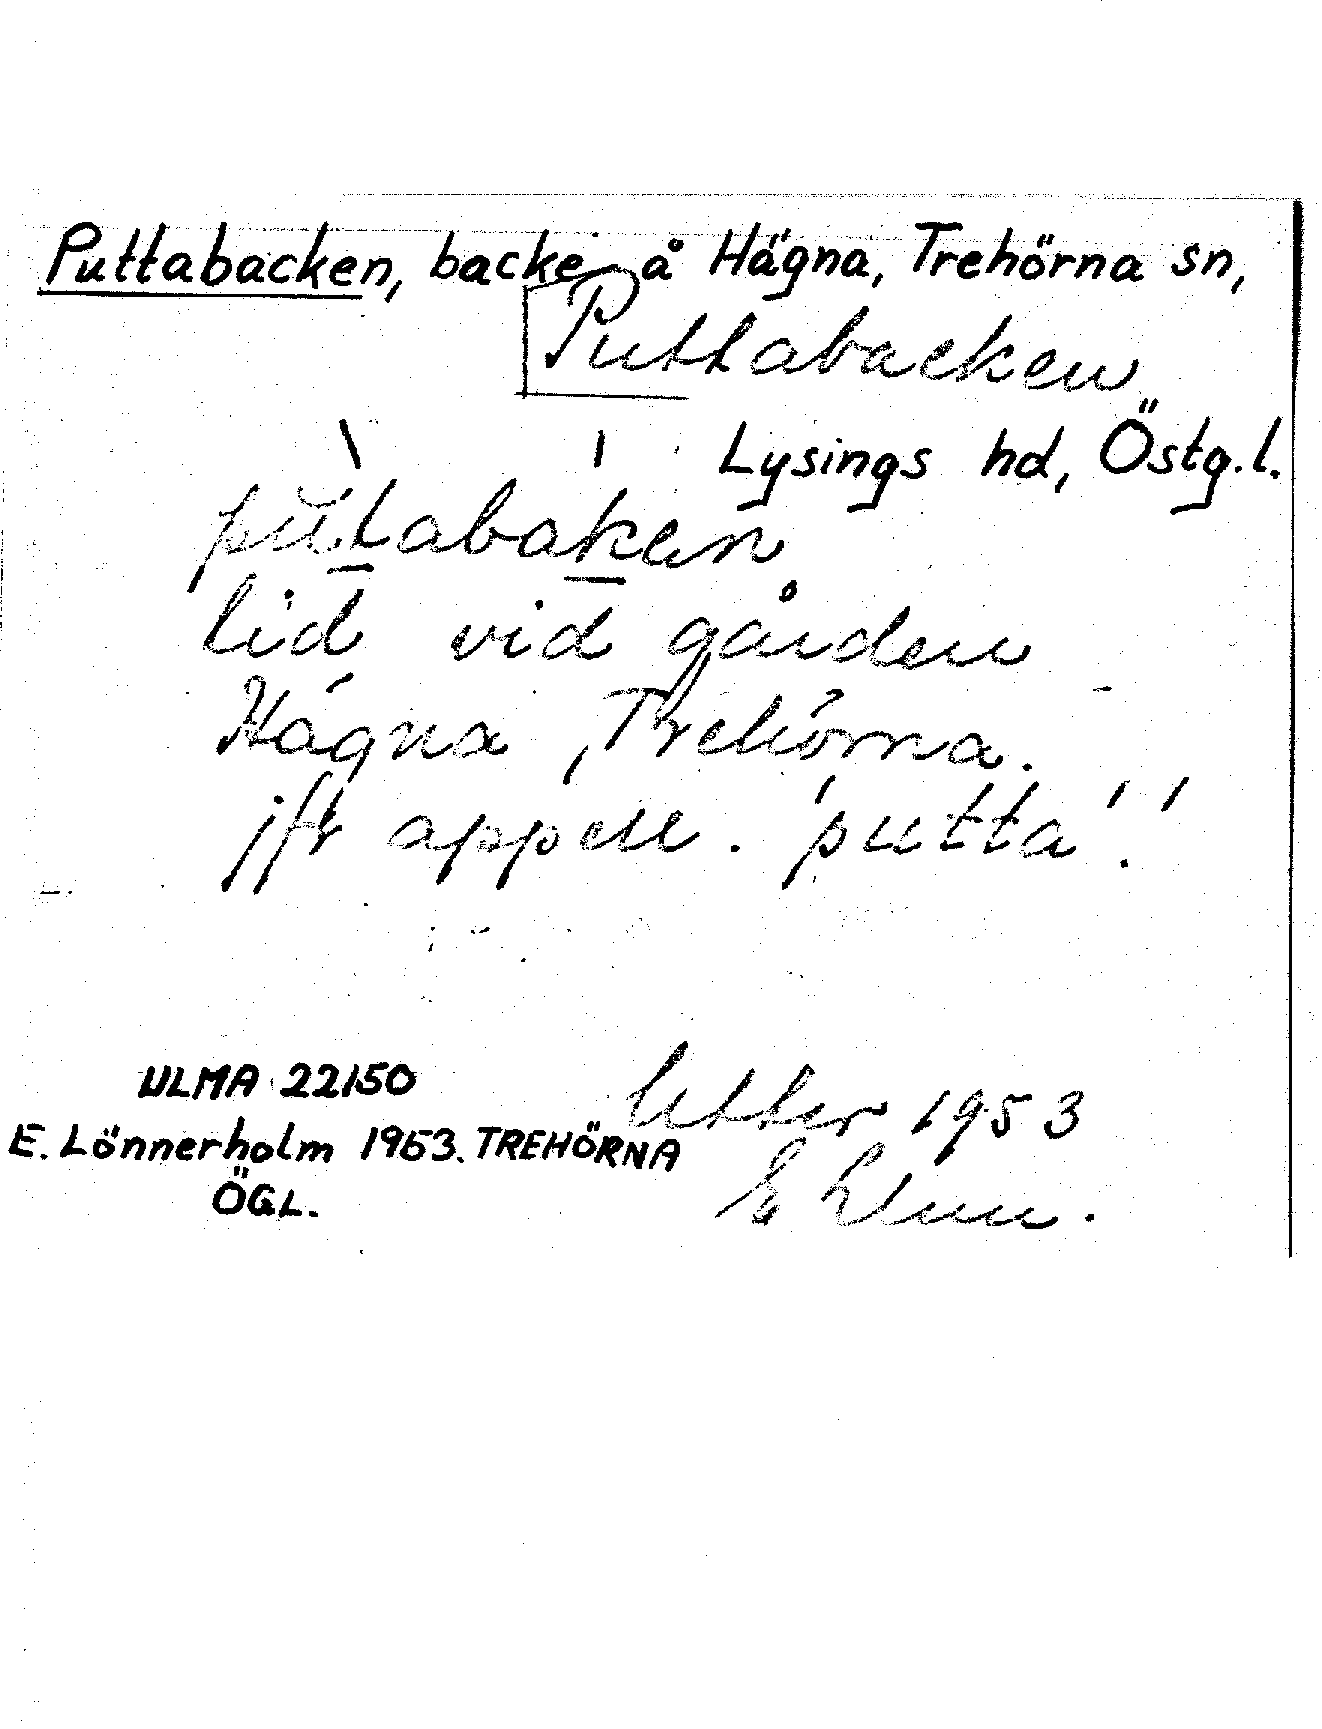 Puttabacken, backe å Hägna, Trehörna sn,
Puttabacken
Lysings hd, Östg.l.
putabaken
lid vid gården
Hägna, Trehörna.
jfr appell. "putta".
ULMA 22150
E. Lönnerholm 1953. TREHÖRNA
ÖGL.
1953
E